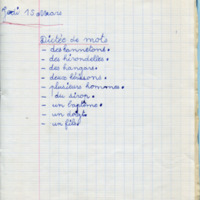 Jeudi 12 Mars
Dictée de mots
- des hannetons.
- des hirondelles.
- des hangars.
- deux buissons.
- plusieurs hommes.
- du sirop.
- un baptême.
- un doigt
- un fils.